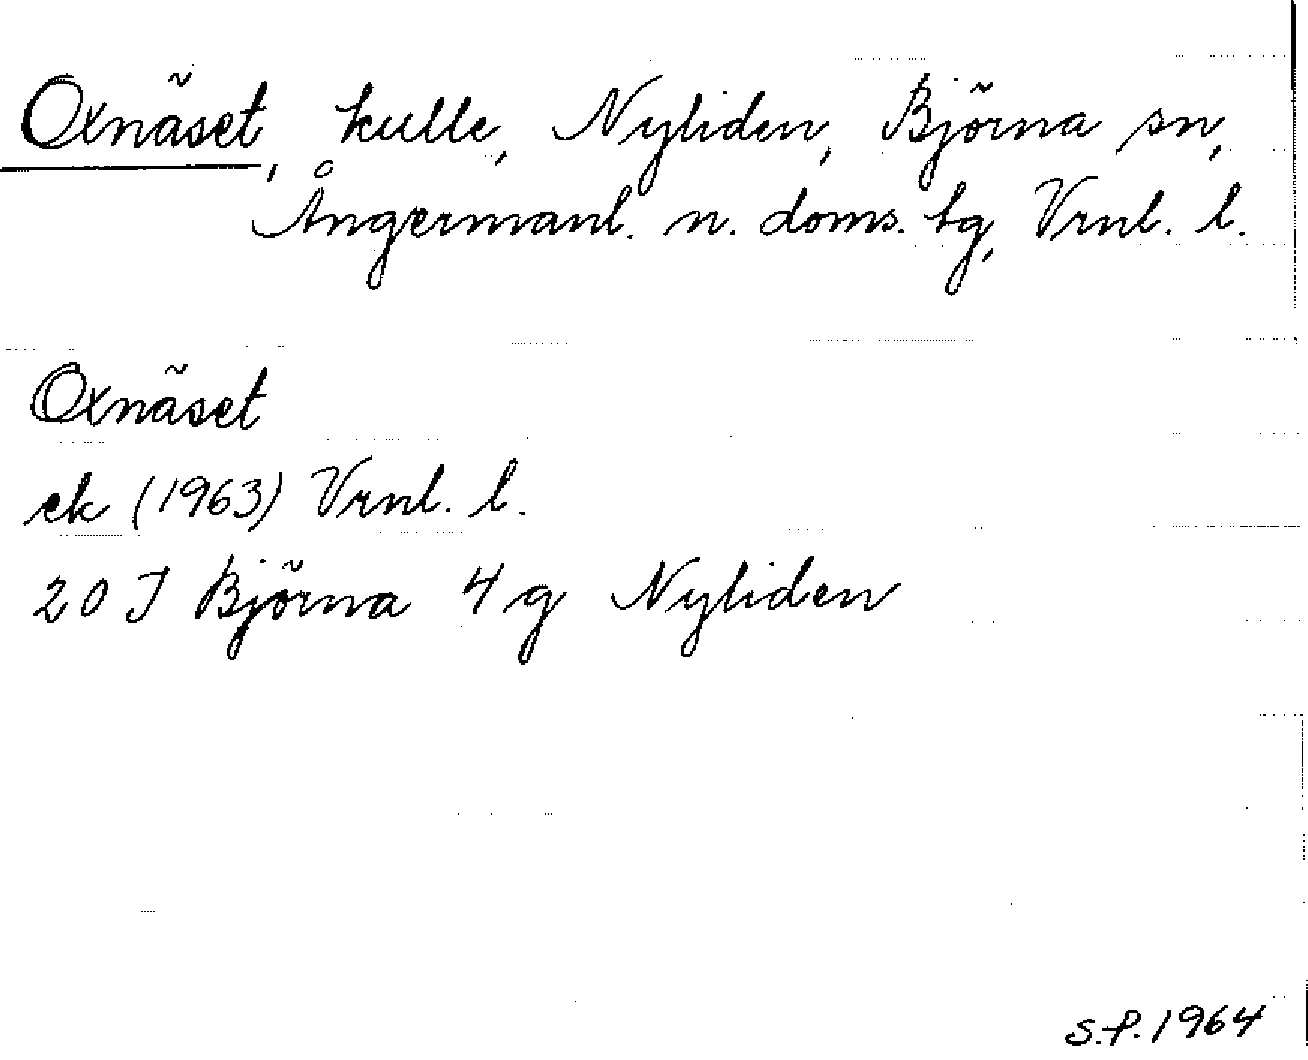 Oxnäset, kulle, Nyliden, Björna sn,
Ångermanl. n. doms. tg, Vrnl. l.
Oxnäset
ek (1963) Vrnl. l.
20 J Björna 4g Nyliden
S.P. 1964